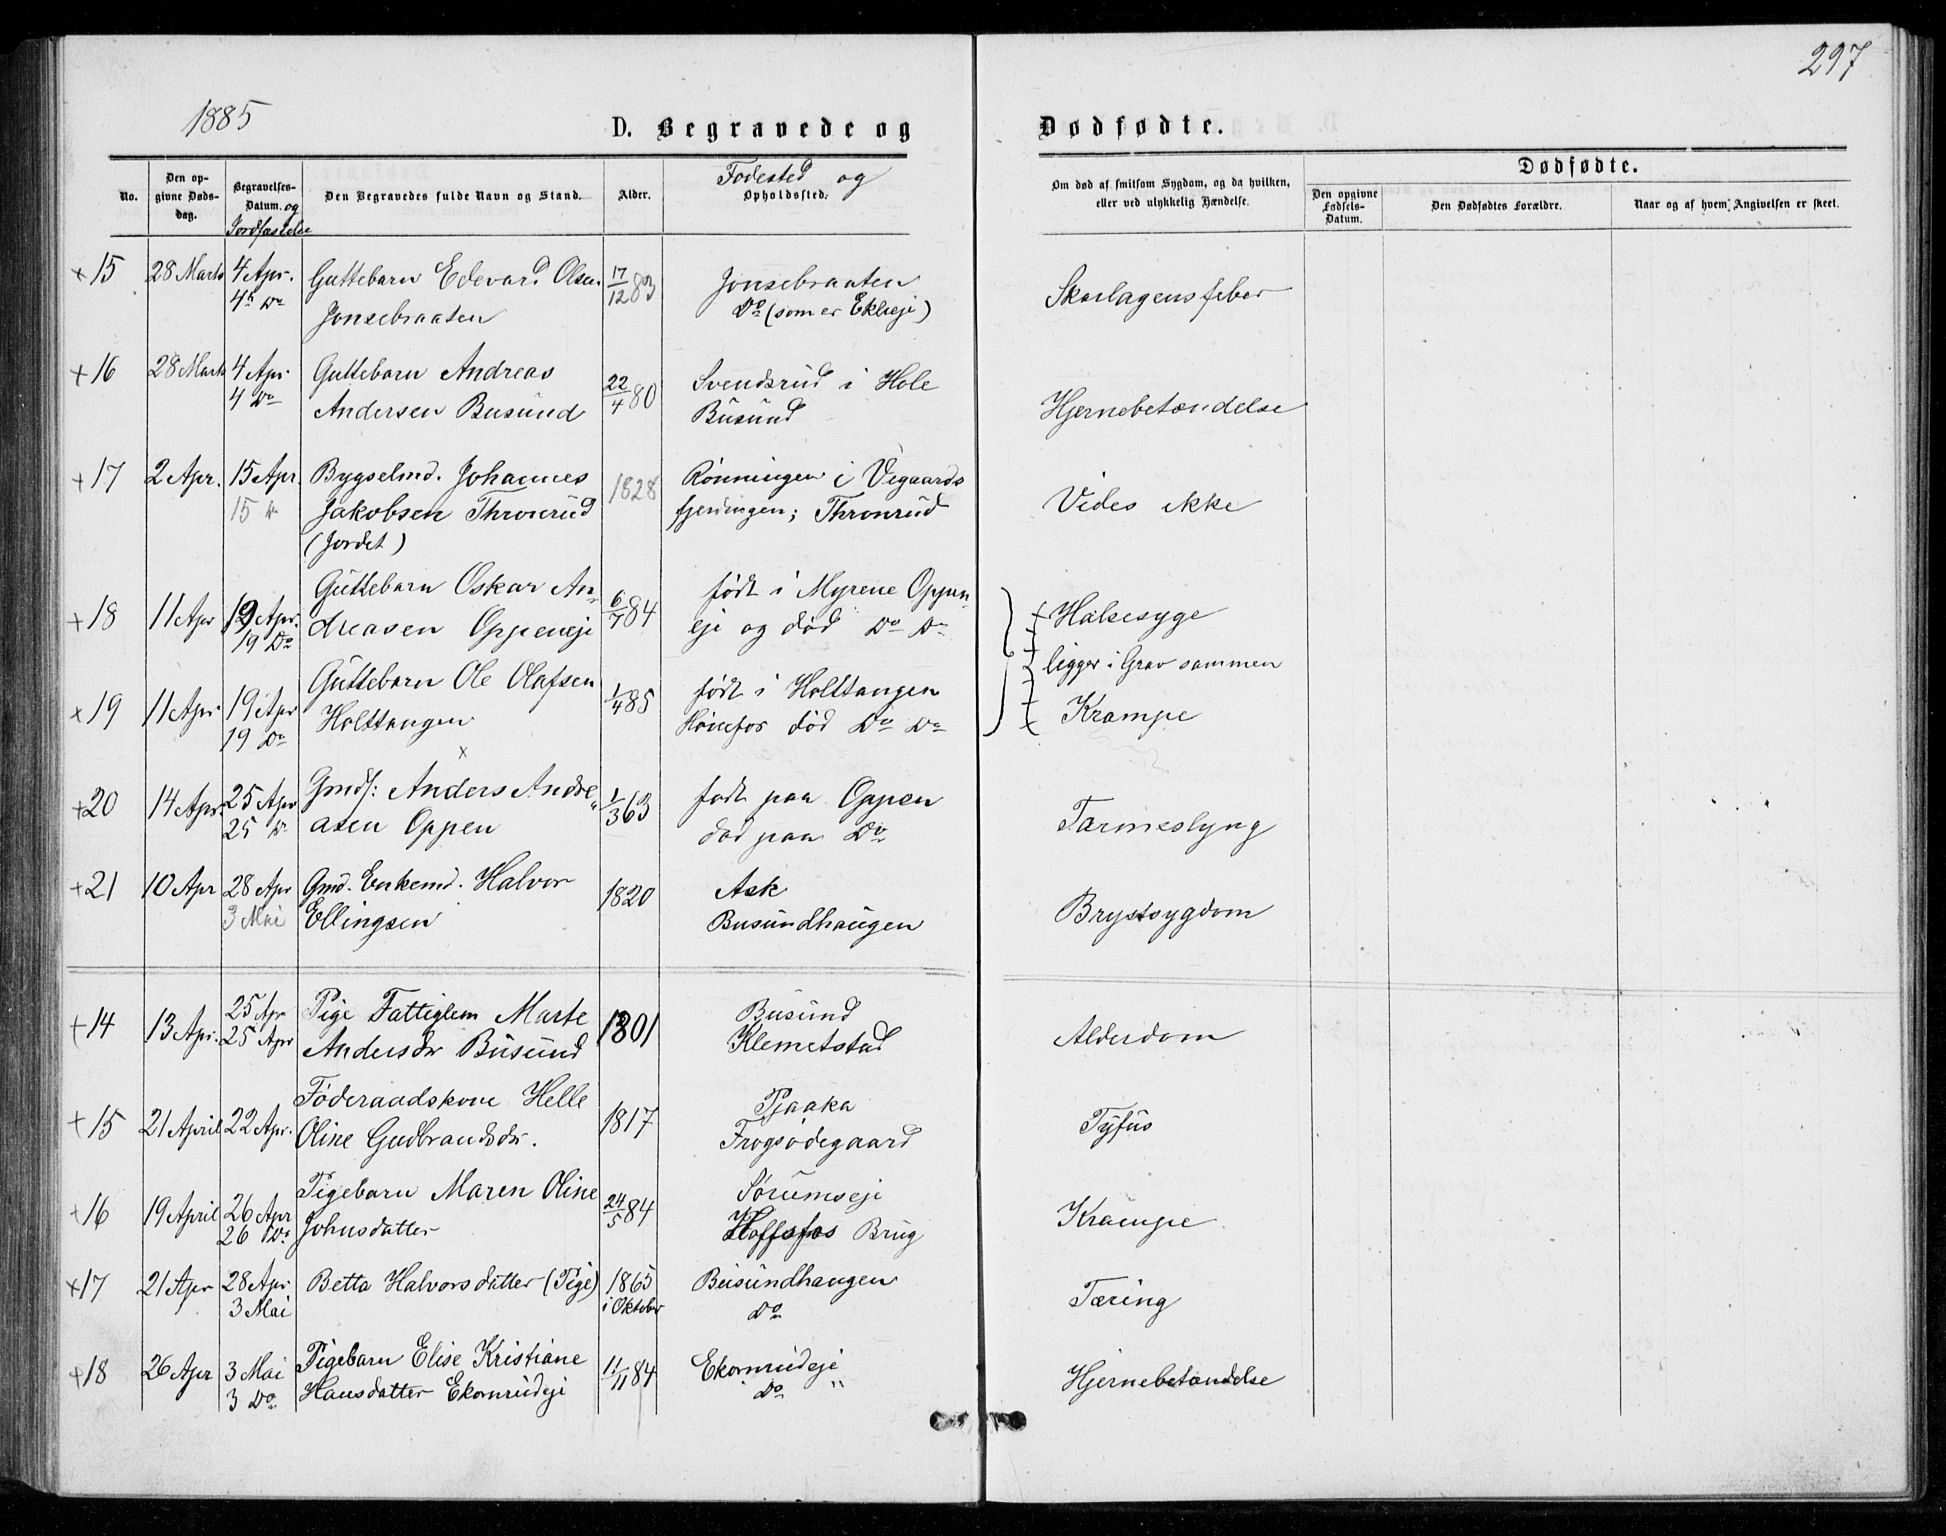 297
1885
D. Begravede og Dødfødte.
No.
Den opgivne Dødsdag.
Begravelses-Datum. og Jordfæstelse
Den Begravedes fulde Navn og Stand.
Alder.
Fødested og Opholdssted.
Om død af smitsom Sygdom, og da hvilken, eller ved ulykkelig Hændelse.
Dødfødte.
Den opgivne Fødsels-Datum.
Den Dødfødtes Forældre.
Naar og af hvem Angivelsen er skeet.
+15 28 Marts 4 Apr. Guttebarn Edevard Olsen 17/12 83 Jonsebraaten Skarlagensfeber
4 Do Jonsebraaten Do (som er Ekleeje)
+16 28 Marts 4 Apr. Guttebarn Andreas 22/4 80 Svendsrud i Hole Hjernebetændelse
4 Do Andersen Busund Busund
+17 2 Apr. 15 Apr Bygselmd. Johannes 1828 Rønningen i Vegaards Vides ikke
15 Do Jakobsen Thronrud fjerdingen; Thronrud
(Jordet)
+18 11 Apr 19 Apr. Guttebarn Oskar An- 6/7 84 født i Myrene Oppen- Halsesyge
19 Do dreasen Oppeneje eje og død Do Do
ligger i Grav sammen
+19 11 Apr. 19 Apr Guttebarn Ole Olafsen 1/4 85 født i Holttangen Krampe
19 Do Holttangen Hønefos død Do Do
+20 14 Apr. 25 Apr Gmdf: Anders Andre- 1/3 63 født paa Oppen Tarmeslyng
25 Do asen Oppen død paa Do
+21 10 Apr 28 Apr Gmd. Enkemd. Halvor 1820 Ask Brystsygdom
3 Mai Ellingsen Busundhaugen
+14 13 Apr. 25 Apr Pige Fattiglem Marte 1801 Busund Alderdom
25 Apr Andersdr Busund Klemetstad
+15 21 April 22 Apr. Føderaadskone Helle 1817 Pjaaka Tyfus
Oline Gudbrandsdr. Frogsødegaard
+16 19 April 26 Apr Pigebarn Maren Oline 24/5 84 Sørumseje Krampe
26 Do Johnsdatter Hoffsfos Brug
+17 21 Apr 28 Apr. Betta Halvorsdatter (Pige) 1865 Busundhaugen Tæring
3 Mai i Oktober Do
+18 26 Apr 3 Mai Pigebarn Elise Kristiane 11/11 84 Ekornrudeje Hjernebetændelse
3 Do Hansdatter Ekornrudeje Do "